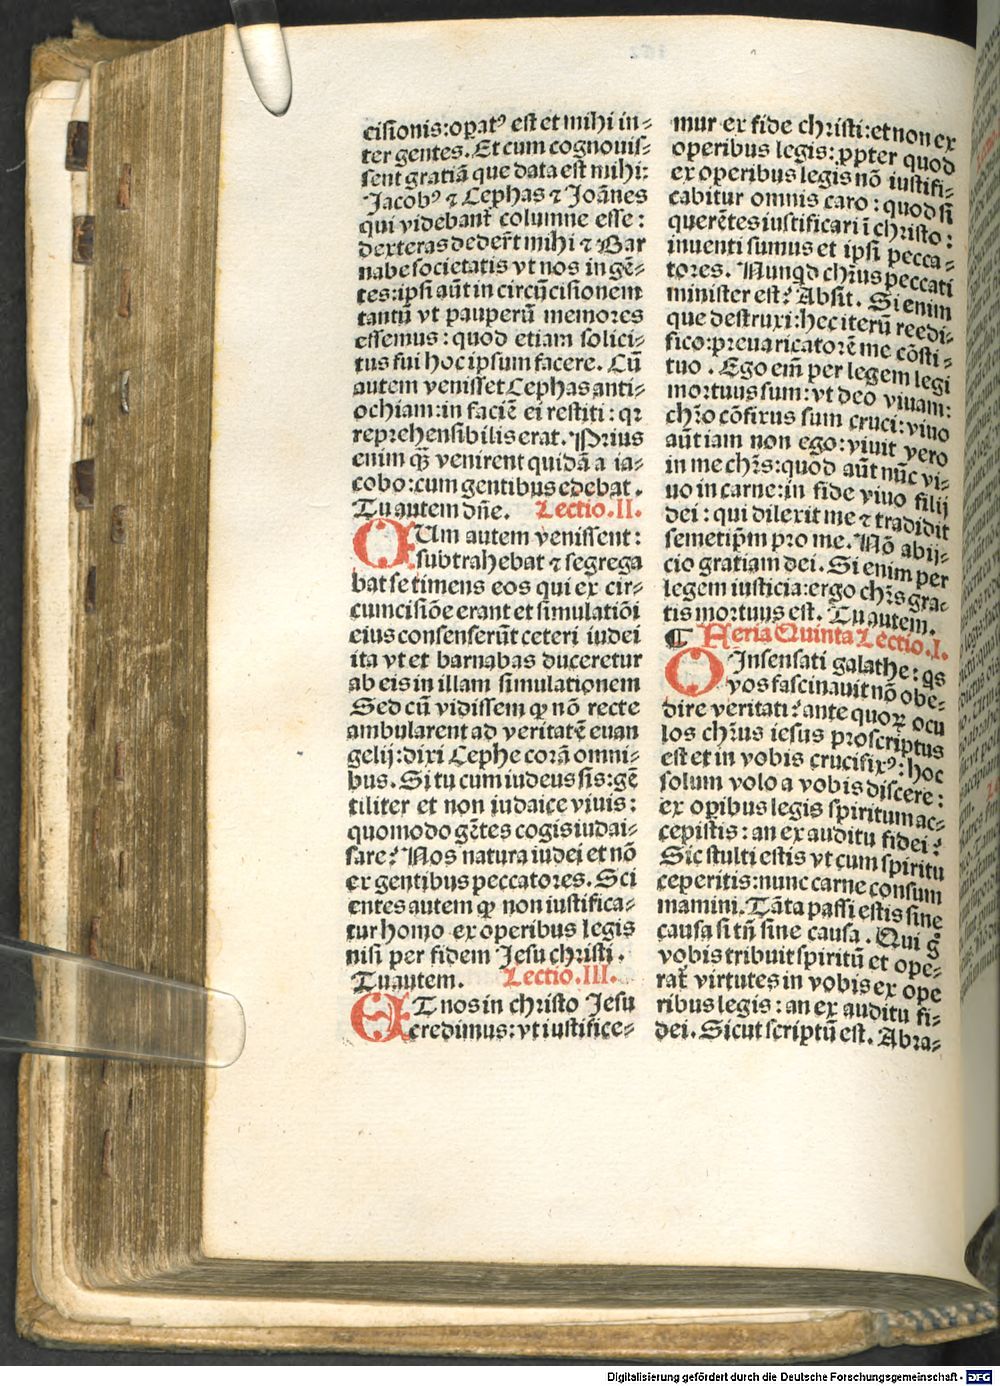 cisionis:opat⁹ est et mihi in⸗
ter gentes. Et cum cognouis⸗
sent gratiã que data est mihi:
Jacob⁹ ⁊ Cephas ⁊ Joãnes
qui videbant̃ columne esse:
dexteras dedert̃ mihi ⁊ Bar
nabe societatis vt nos in gẽ⸗
tes:ipsi aũt in circũcisionem
tantũ vt pauperũ memores
essemus: quod etiam solici⸗
tus fui hoc ipsum facere. Cũ
autem venisset Cephas anti⸗
ochiam:in faciẽ ei restiti: qꝛ
reprehensibilis erat. Prius
enim q̃ȝ venirent quidã a ia⸗
cobo:cum gentibus edebat.
Tu autem dñe. Lectio.II.
CUm autem venissent:
subtrahebat ⁊ segrega
bat se timens eos qui ex cir⸗
cumcisiõe erant et simulatiõi
eius consenserũt ceteri iudei
ita vt et barnabas duceretur
ab eis in illam simulationem
Sed cũ vidissem ꝙ nõ recte
ambularent ad veritatẽ euan
gelij:dixi Cephe corã omni⸗
bus. Si tu cum iudeus sis:gẽ
tiliter et non iudaice viuis:
quomodo gẽtes cogis iudai⸗
sare? Nos natura iudei et nõ
ex gentibus peccatores. Sci
entes autem ꝙ non iustifica⸗
tur homo ex operibus legis
nisi per fidem Jesu christi.
Tu autem. Lectio.III.
ET nos in christo Jesu
credimus:vt iustifice⸗
mur ex fide christi:et non ex
operibus legis: ꝓpter quod
ex operibus legis nõ iustifi⸗
cabitur omnis caro: quod si
querẽtes iustificari ĩ christo:
inuenti sumus et ipsi pecca⸗
tores. Nunqd chr̃us peccati
minister est? Absit. Si enim
que destruxi:hec iterũ reedi⸗
fico:preuaricatorẽ me cõsti⸗
tuo. Ego em̃ per legem legi
mortuus sum: vt deo viuam:
chr̃o cõfixus sum cruci: viuo
aũt iam non ego: viuit vero
in me chr̃s: quod aũt nũc vi⸗
uo in carne:in fide viuo filij
dei: qui dilexit me ⁊ tradidit
semetip̃m pro me. Nõ abij⸗
cio gratiam dei. Si enim per
legem iusticia:ergo chr̃s gra⸗
tis mortuus est. Tu autem.
¶ Feria Quinta Lectio.I.
O Insensati galathe: qs
vos fascinauit nõ obe⸗
dire veritati? ante quoꝝ ocu
los chr̃us iesus proscriptus
est et in vobis crucifix⁹: hoc
solum volo a vobis discere:
ex oꝑibus legis spiritum ac⸗
cepistis: an ex auditu fidei?
Sic stulti estis vt cum spiritu
ceperitis:nunc carne consum
mamini. Tãta passi estis sine
causa si tñ sine causa. Qui g̃
vobis tribuit spiritũ et ope⸗
rat̃ virtutes in vobis ex ope
ribus legis: an ex auditu fi⸗
dei. Sicut scriptũ est. Abra⸗
Digitalisierung gefördert durch die Deutsche Forschungsgemeinschaft - DFG